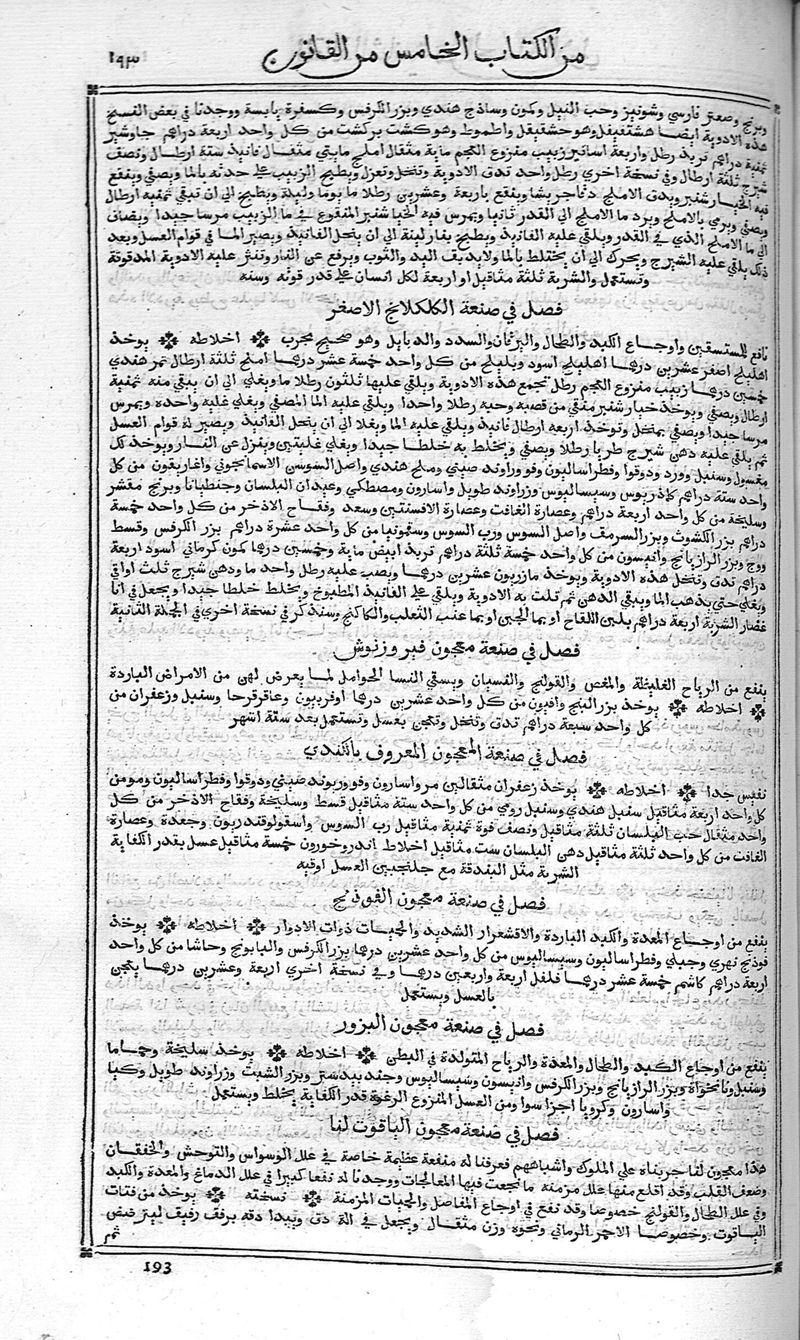 من الكتاب الخامس من القانون
١٩٣
وبرنج وصعتر فارسي وشونيز وحب النيل وكمون وساذج هندي وبزر الكرفس وكسفرة يابسة ووجدنا في بعض النسخ
هذه الادوية ايضا هشقنيقل وهو حشقيقل واطموط وهو كشت بركشت من كل واحد اربعة دراهم جاوشير
ثمنية دراهم تربد رطل واربعة اساتير زبيب منزوع العجم ماية مثقال املج مايتي مثقال فانيذ ستة ارطال ونصف
شيرج ثلثة ارطال وفي نسخة اخري رطل واحد تدق الادوية وتنخل وتعزل ويطبخ الزبيب علي حدته بالما ويصفي وينقع
فيه الخيار شنبر ويدق الاملج دقا جريشا وينقع باربعة وعشرين رطلا ما يوما وليلة ويطبخ الي ان تبقي ثمنية ارطال
ويصفي ويرمي بالاملج ويرد ما الاملج الي القدر ثانيا ويمرس فيه الخيار شنبر المنقوع في ما الزبيب مرسا جيدا ويضاف
الي ما الاملج الذي في القدر ويلقي عليه الفانيذ ويطبخ بنار لينة الي ان ينحل الفانيذ ويصير الما في قوام العسل وبعد
ذلك يلقي عليه الشيرج ويحرك الي ان يختلط بالما ولا يدبق اليد والثوب ويرفع عن النار وتنثر عليه الادوية المدقوقة
وتستعمل والشربة ثلثة مثاقيل او اربعة لكل انسان علي قدر قوته وسنه
فصل في صنعة الكلكلانج الاصغر
نافع للمستسقين واوجاع الكبد والطحال واليرقان والسدد والدبايل وهو صحيح مجرب اخلاطه يوخذ
اهليلج اصفر عشرين درهما اهليلج اسود وبليلج من كل واحد خمسة عشر درهما املج ثلثة ارطال تمر هندي
خمسين درهما زبيب منزوع العجم رطل تجمع هذه الادوية ويلقي عليها ثلثون رطلا ما ويغلي الي ان يبقي منه ثمنية
ارطال ويصفي ويوخذ خيار شنبر منقي من قصبه وحبه رطلا واحدا ويلقي عليه الما المصفي ويغلي غلية واحدة ويمرس
مرسا جيدا ويصفي بمنخل وتوخذ اربعة ارطال فانيذ ويلقي عليه الما ويغلا الي ان ينحل الفانيذ ويصير له قوام العسل
ثم يلقي عليه دهن شيرج طريا رطلا ويصفي ويخلط به خلطا جيدا ويغلي غليتين وينزل عن النار ويوخذ لك
مغسول وسنبل وورد ودوقوا وفطراساليون وفو وراوند صيني وملح هندي واصل السوسن الاسمانجوني وغاريقون من كل
واحد ستة دراهم كاذريوس وسيساليوس وزراوند طويل واسارون ومصطكي وعيدان البلسان وجنطيانا وبرنج مقشر
وسليخة من كل واحد اربعة دراهم وعصارة الغافت وعصارة الافسنتين وسعد وفقاح الاذخر من كل واحد خمسة
دراهم بزر الكشوث وبزر السرمق واصل السوس ورب السوس وسقمونيا من كل واحد عشرة دراهم بزر الكرفس وقسط
ووج وبزر الرازيانج وانيسون من كل واحد خمسة ثلثة دراهم تربد ابيض ماية وخمسين درهما كمون كرماني اسود اربعة
دراهم تدق وتنخل هذه الادوية ويوخذ مازريون عشرين درهما ويصب عليه رطل واحد ما ودهن شيرج ثلث اواقي
ويغلي حتي يذهب الما ويبقي الدهن ثم تلت به الادوية ويلقي علي الفانيذ المطبوخ ويخلط خلطا جيدا ويجعل في انا
غضار الشربة اربعة دراهم بلبن اللقاح او بما الجبن او بما عنب الثعلب والكاكنج وسنذكر في نسخة اخري في الجملة الثانية
فصل في صنعة معجون قبر وزنوش
ينفع من الرياح الغليظة والمغص والقولنج والغسيان ويسقي النسا الحوامل لما يعرض لهن من الامراض الباردة
اخلاطه يوخذ بزر البنج وافيون من كل واحد عشرين درهما اوفربيون وعاقرقرحا وسنبل وزعفران من
كل واحد سبعة دراهم تدق وتنخل وتعجن بعسل وتستعمل بعد ستة اشهر
فصل في صنعة المعجون المعروف بالكندي
نفيس جدا اخلاطه يوخذ زعفران مثقالين مر واسارون وفو وريوند صيني ودوقوا وفطراساليون ومو من
كل واحد اربعة مثاقيل سنبل هندي وسنبل رومي من كل واحد ستة مثاقيل قسط وسليخة وفقاح الاذخر من كل
واحد مثقال حب البلسان ثلثة مثاقيل ونصف فوة ثمنية مثاقيل رب السوس واسقولوقندريون وجعدة وعصارة
الغافت من كل واحد ثلثة مثاقيل دهن البلسان ست مثاقيل اخلاط اندروخورون خمسة مثاقيل عسل بقدر الكفاية
الشربة مثل البندقة مع جلنجبين العسل اوقية
فصل في صنعة معجون الفوذنج
ينفع من اوجاع المعدة والكبد الباردة والاقشعرار الشديد والحميات ذوات الادوار اخلاطه يوخذ
فوذنج نهري وجبلي وفطراساليون وسيساليوس من كل واحد عشرين درهما بزر الكرفس والبابونج وحاشا من كل واحد
اربعة دراهم كاشم خمسة عشر درهما فلفل اربعة واربعين درهما وفي نسخة اخري اربعة وعشرين درهما يعجن
بالعسل ويستعمل
فصل في صنعة معجون البزور
ينفع من اوجاع الكبد والطحال والمعدة والرياح المتولدة في البطن اخلاطه يوخذ سليخة وحماما
وسنبل ونانخواة وبزر الرازيانج وبزر الكرفس وانيسون وسيساليوس وجندبيدستر وبزر الشبث وزراوند طويل وكيا
واسارون وكرويا اجزا سوا ومن العسل المنزوع الرغوة قدر الكفاية يخلط ويستعمل
فصل في صنعة معجون الياقوت لنا
هذا معجون لنا جربناه علي الملوك واشباههم فعرفنا له منفعة عظيمة خاصة في علل الوسواس والتوحش والخفقان
وضعف القلب وقد اقلع منها علل مزمنة ما نجعت فيها المعالجات ووجدنا له نفعا كبيرا في علل الدماغ والمعدة والكبد
وفي علل الطحال والقولنج خصوصا وقد نفع في اوجاع المفاصل والحميات المزمنة نسخته يوخذ من فتات
الياقوت وخصوصا الاحمر الرماني ونحوه وزن مثقال ويجعل في الة دق ويبدا دقه برفق رفيق ليترضض
ثم
193